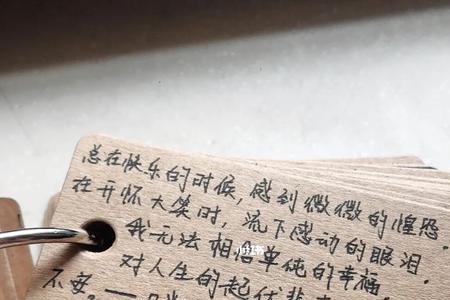 总在快乐的时候,感到微微的惶恐.
在开怀大笑时,流下感动的眼泪.
我无法相信单纯的幸福
对人生的起伏非
不安。——
小红书